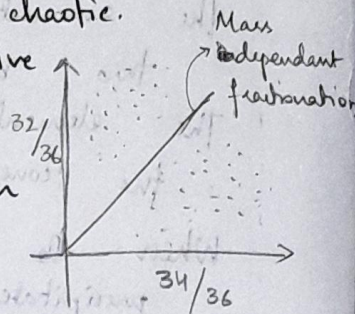 chaotic.
ive
Mass
independant
fractionation
32/36
n
34/36